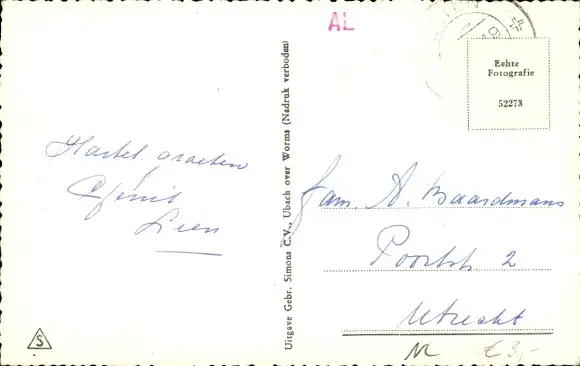 AL
19
Echte
Fotografie
52273
Hartel. groeten
Lien
Uitgave Gebr. Simons C.V., Ubach over Worms (Nadruk verboden)
Fam. A. Baardmans
Poortstr. 2
Utrecht
€3,-
S